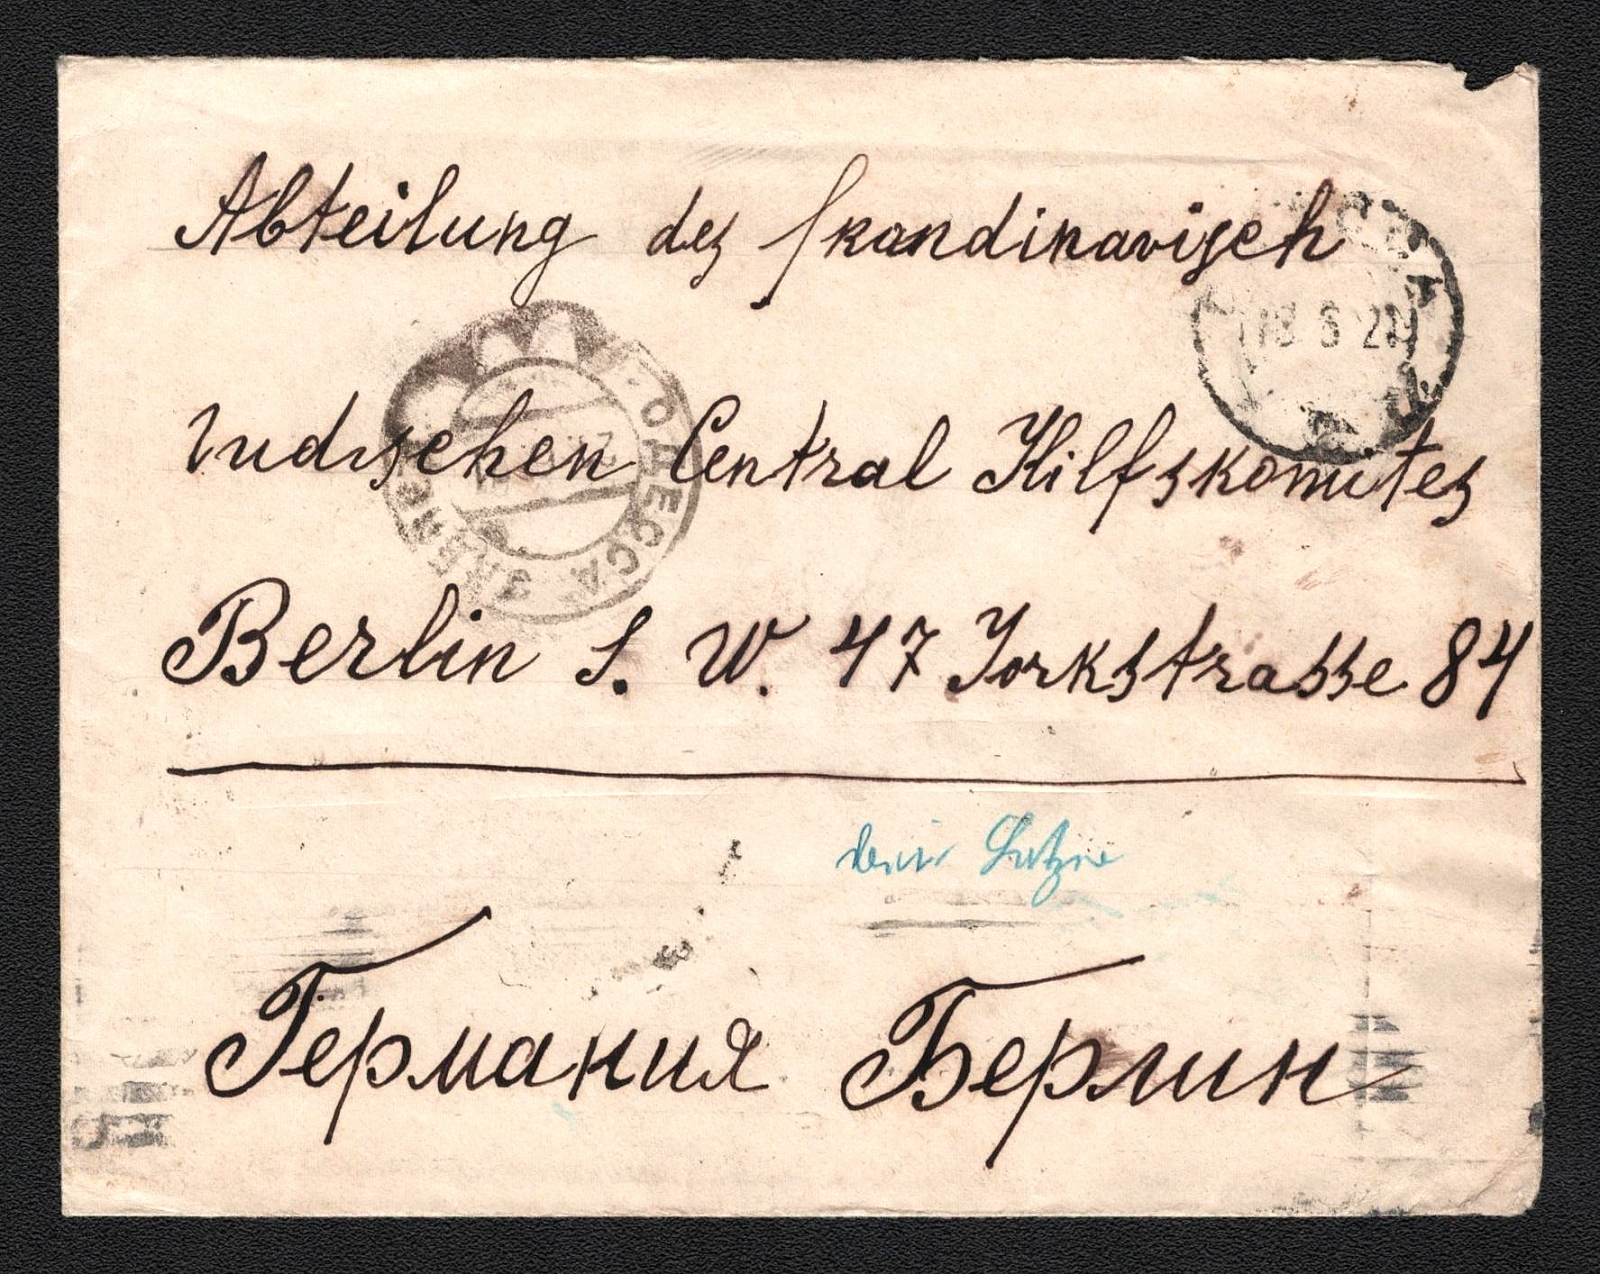 Abteilung des Skandinavisch
Iudischen Central Hilfskomites
Berlin S. W. 47 Yorkstrasse 84
ОДЕССА
Германия Берлин